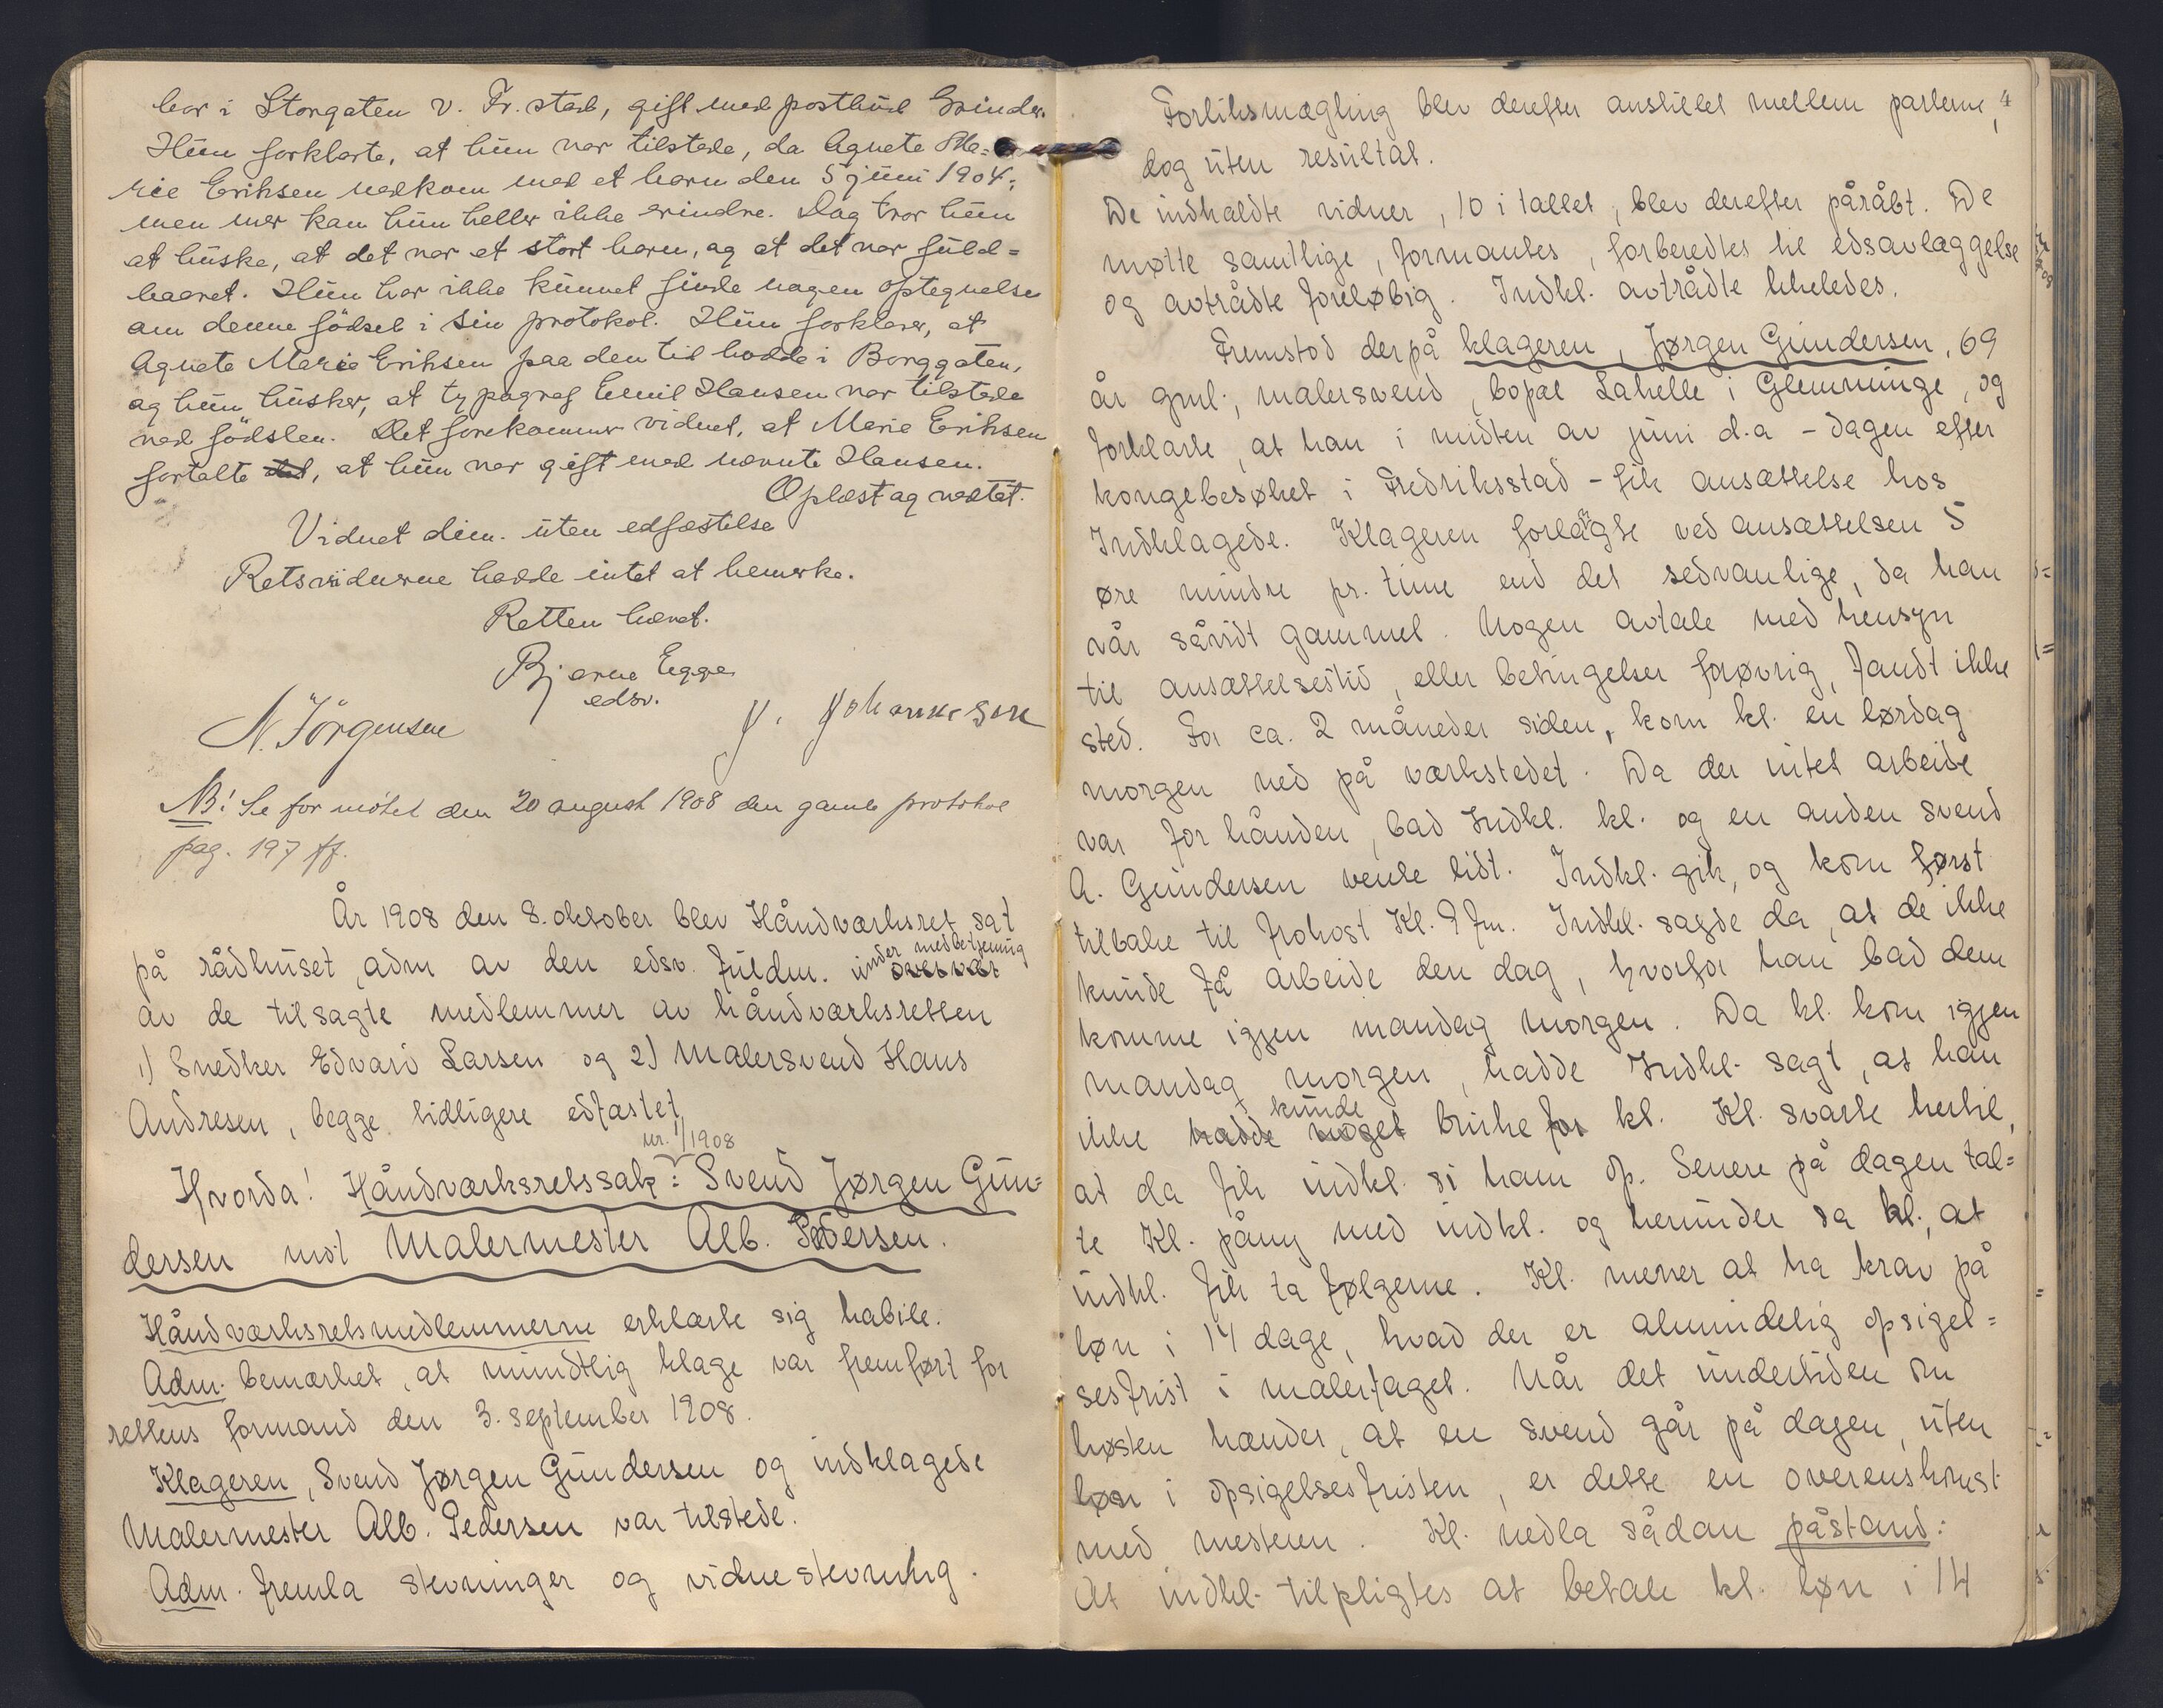 bor i Storgaten v. Fr.stad, gift med postbud Grinder.
Hun forklarte, at hun var tilstede, da Agnete Ma=
rie Eriksen nedkom med et barn den 5 juni 1904;
men mer kan hun heller ikke erindre. Dog tror hun
at huske, at det var et stort barn, og at det var fuld=
baaret. Hun har ikke kunnet finde nogen optegnelse
om denne födsel i sin protokol. Hun forklarer, at
Agnete Marie Eriksen paa den tid bodde i Borggaten,
og hun husker, at typograf Emil Hansen var tilstede
ved födslen. Det forekommer vidnet, at Marie Eriksen
fortalte det, at hun var gift med nævnte Hansen.
Oplæst og vedtat.
Vidnet dim. uten edfæstelse
Retsvidnerne hadde intet at bemerke.
Retten hævet.
Bjarne Egge
edsv.
N. Jörgensen
J. Johannesen
NB! Se for mötet den 20 august 1908 den gamle protokol
pag. 197 ff.
År 1908 den 8. oktober blev Håndværksret sat
på rådhuset, adm av den edsv. fuldm. under medbetjening
overvær
av de tilsagte medlemmer av håndværksretten
1) Snedker Edvard Larsen og 2) malersvend Hans
Andresen, begge tidligere edfæstet
nr. 1/1908
Hvorda! Håndværksretssak: Svend Jørgen Gun=
dersen mot Malermester Alb. Pedersen.
Håndværksretsmedlemmerne erklærte sig habile.
Adm. bemærket, at mundtlig klage var fremført for
rettens formand den 3. september 1908.
Klageren, Svend Jørgen Gundersen og indklagede
Malermester Alb. Pedersen var tilstede.
Adm. fremla stevninger og vidnestevning.
4
Forliksmægling blev derefter anstillet mellem parterne,
dog uten resultat.
De indkaldte vidner, 10 i tallet, blev derefter påråbt. De
møtte samtlige, formantes, forberedtes til edsavlæggelse
og avtrådte foreløbig. Indkl. avtrådte likeledes.
Fremstod derpå klageren, Jørgen Gundersen, 69
år gml., malersvend, bopæl Lahelle i Glemminge, og
forklarte, at han i midten av juni d.a – dagen efter
kongebesøket i Fredriksstad – fik ansættelse hos
Indklagede. Klageren forlangte ved ansættelsen 5
øre mindre pr. time end det sedvanlige, da han
vår såvidt gammel. Nogen avtale med hensyn
til ansættelsestid, eller betingelser forøvrig, fandt ikke
sted. For ca. 2 måneder siden, kom kl. en lørdag
morgen ned på værkstedet. Da der intet arbeide
var for hånden, bad Indkl. kl. og en anden svend
A. Gundersen vente lidt. Indkl. gik, og kom først
tilbake til frokost Kl. 9 fm. Indkl. sagde da, at de ikke
kunde få arbeide den dag, hvorfor han bad dem
komme igjen mandag morgen. Da kl. kom igjen
mandag morgen, hadde Indkl. sagt, at han
kunde
ikke hadde noget bruke for kl. Kl. svarte hertil,
at da fik indkl. si ham op. Senere på dagen tal=
te Kl. påny med indkl. og herunder sa kl., at
indkl. fik ta følgerne. Kl. mener at ha krav på
løn i 14 dage, hvad der er almindelig opsigel=
sesfrist i malerfaget. Når det undertiden om
høsten hænder, at en svend går på dagen, uten
løn i opsigelsesfristen, er dette en overenskomst
med mesteren. Kl. nedla sådan påstand:
At indkl. tilpligtes at betale kl. løn i 14